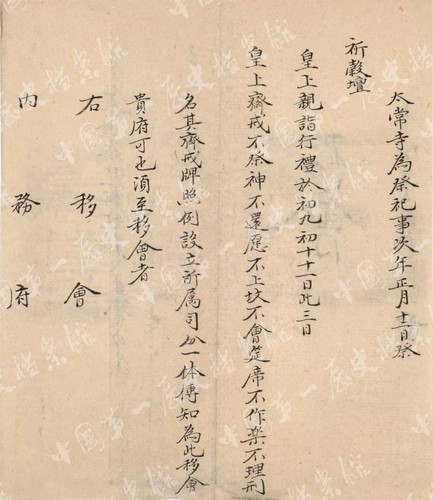 太常寺為祭祀事次年正月十一日祭
祈穀壇
皇上親詣行禮於初九初十十一日此三日
皇上齋戒不祭神不還愿不上坟不會筵席不作樂不理刑
名其齋戒牌照例設立所属司分一体傳知為此移會
貴府可也湏至移會者
右移會
内務府
中國第一歷史檔案館